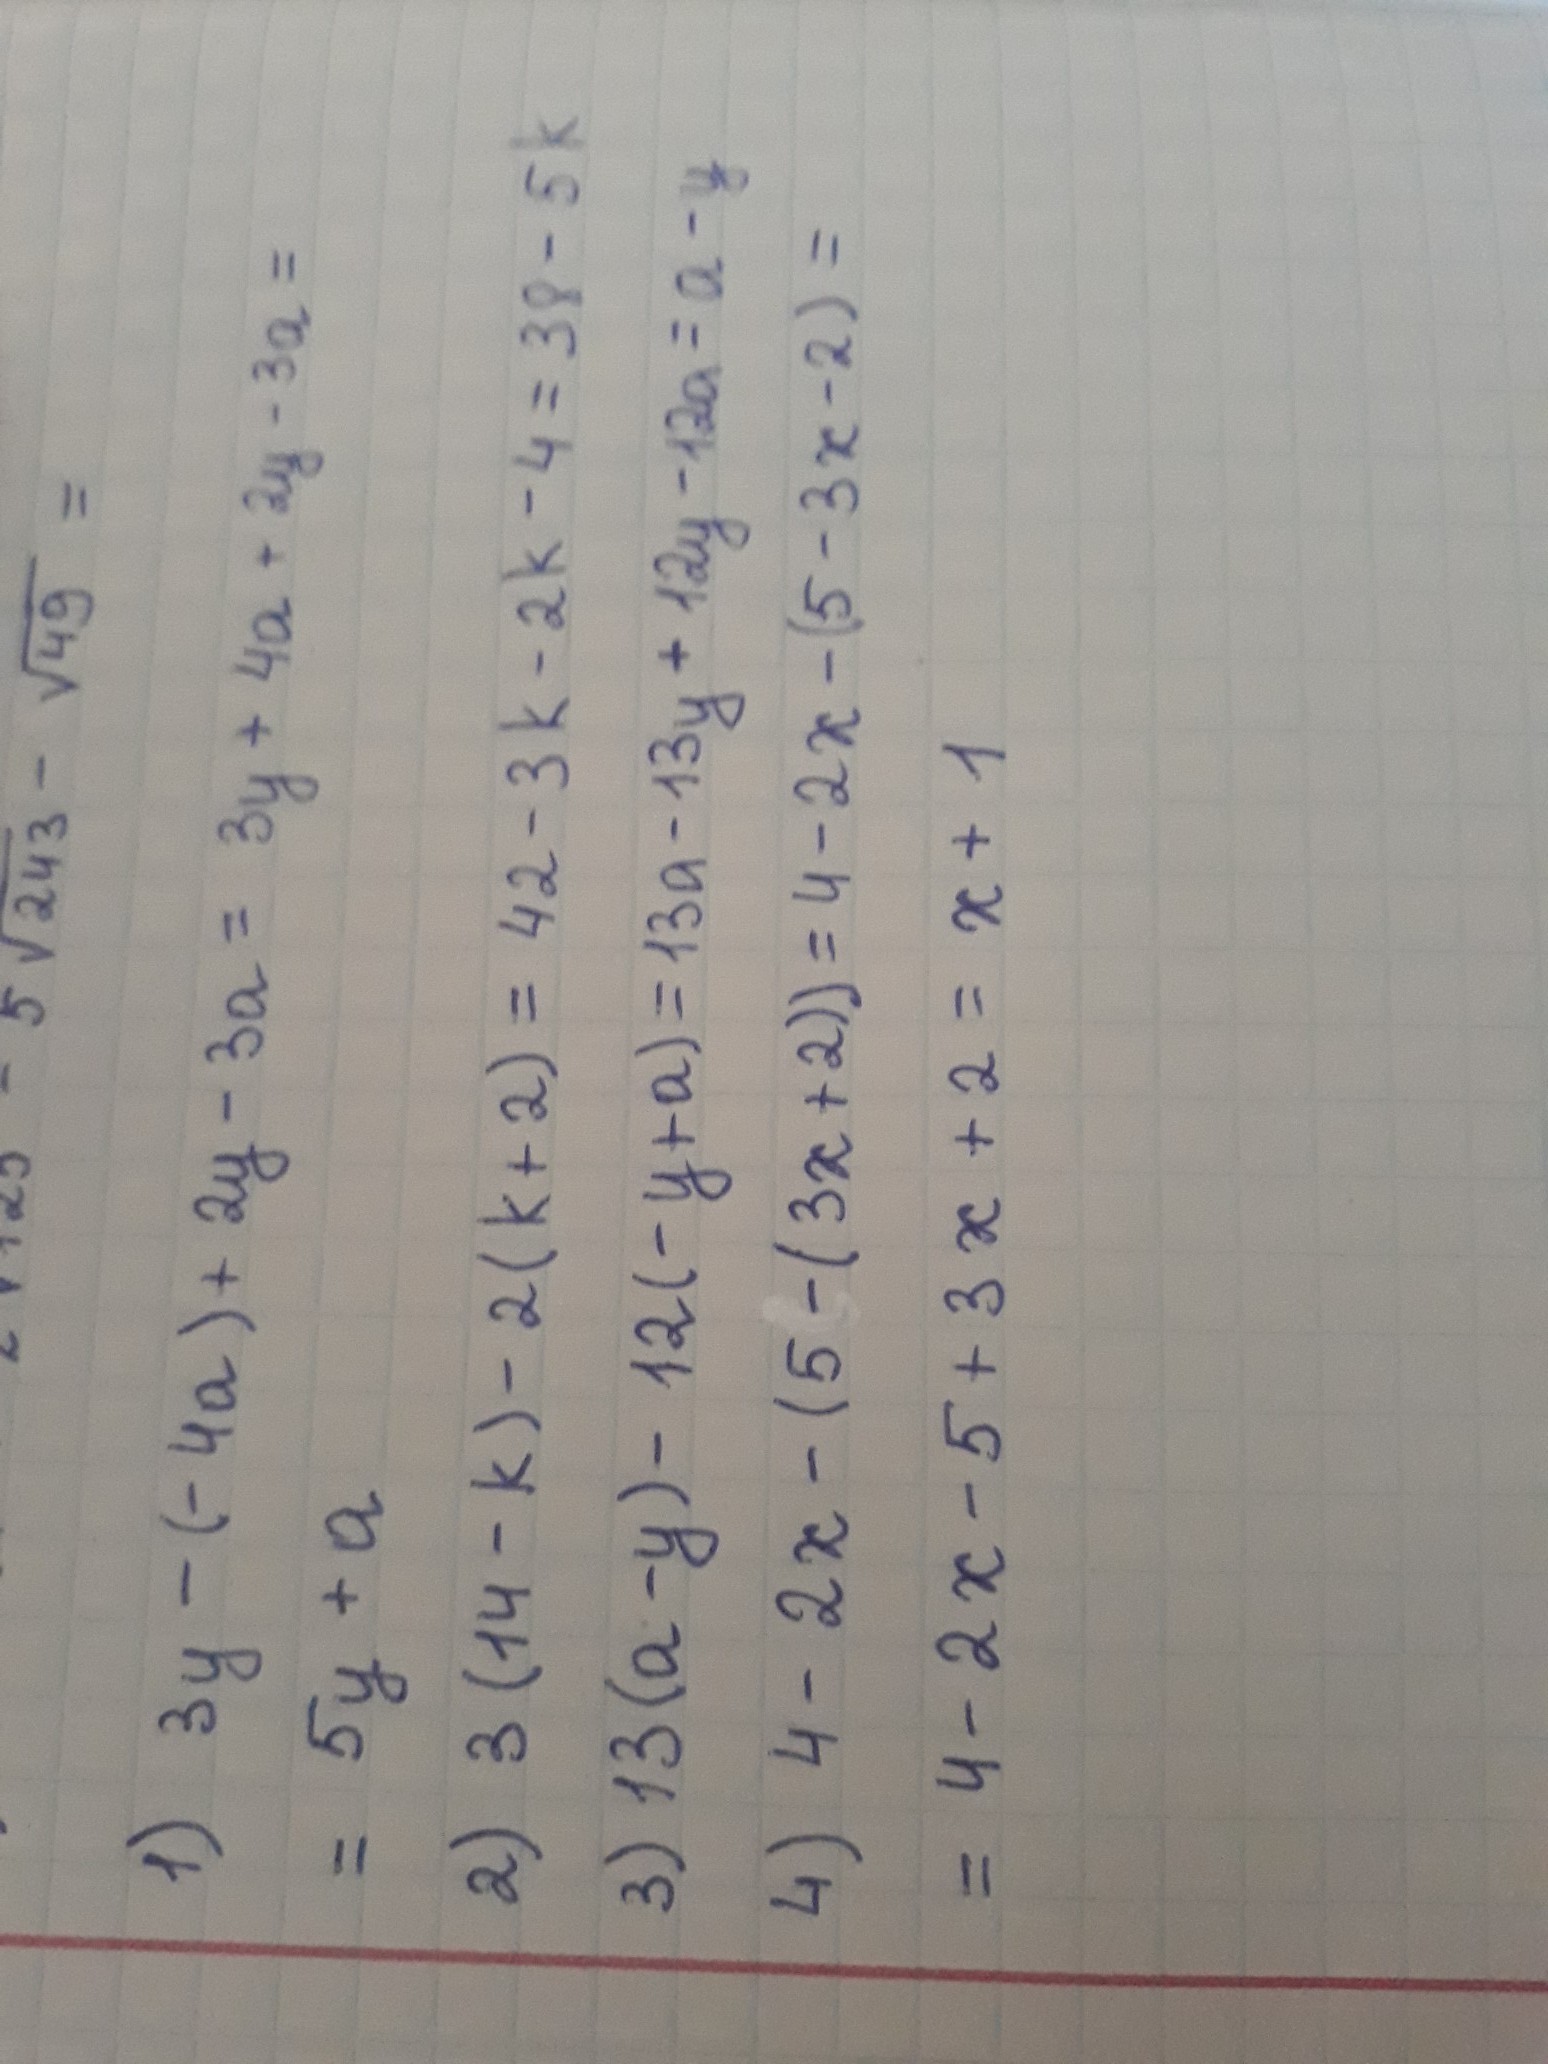 - 5√243 - √49 =
1) 3y - (- 4a) + 2y - 3a = 3y + 4a + 2y - 3a =
= 5y + a
2) 3 (14 - k) - 2 (k + 2) = 42 - 3k - 2k - 4 = 38 - 5k
3) 13 (a - y) - 12 (- y + a) = 13a - 13y + 12y - 12a = a - y
4) 4 - 2x - (5 - (3x + 2)) = 4 - 2x - (5 - 3x - 2) =
= 4 - 2x - 5 + 3x + 2 = x + 1